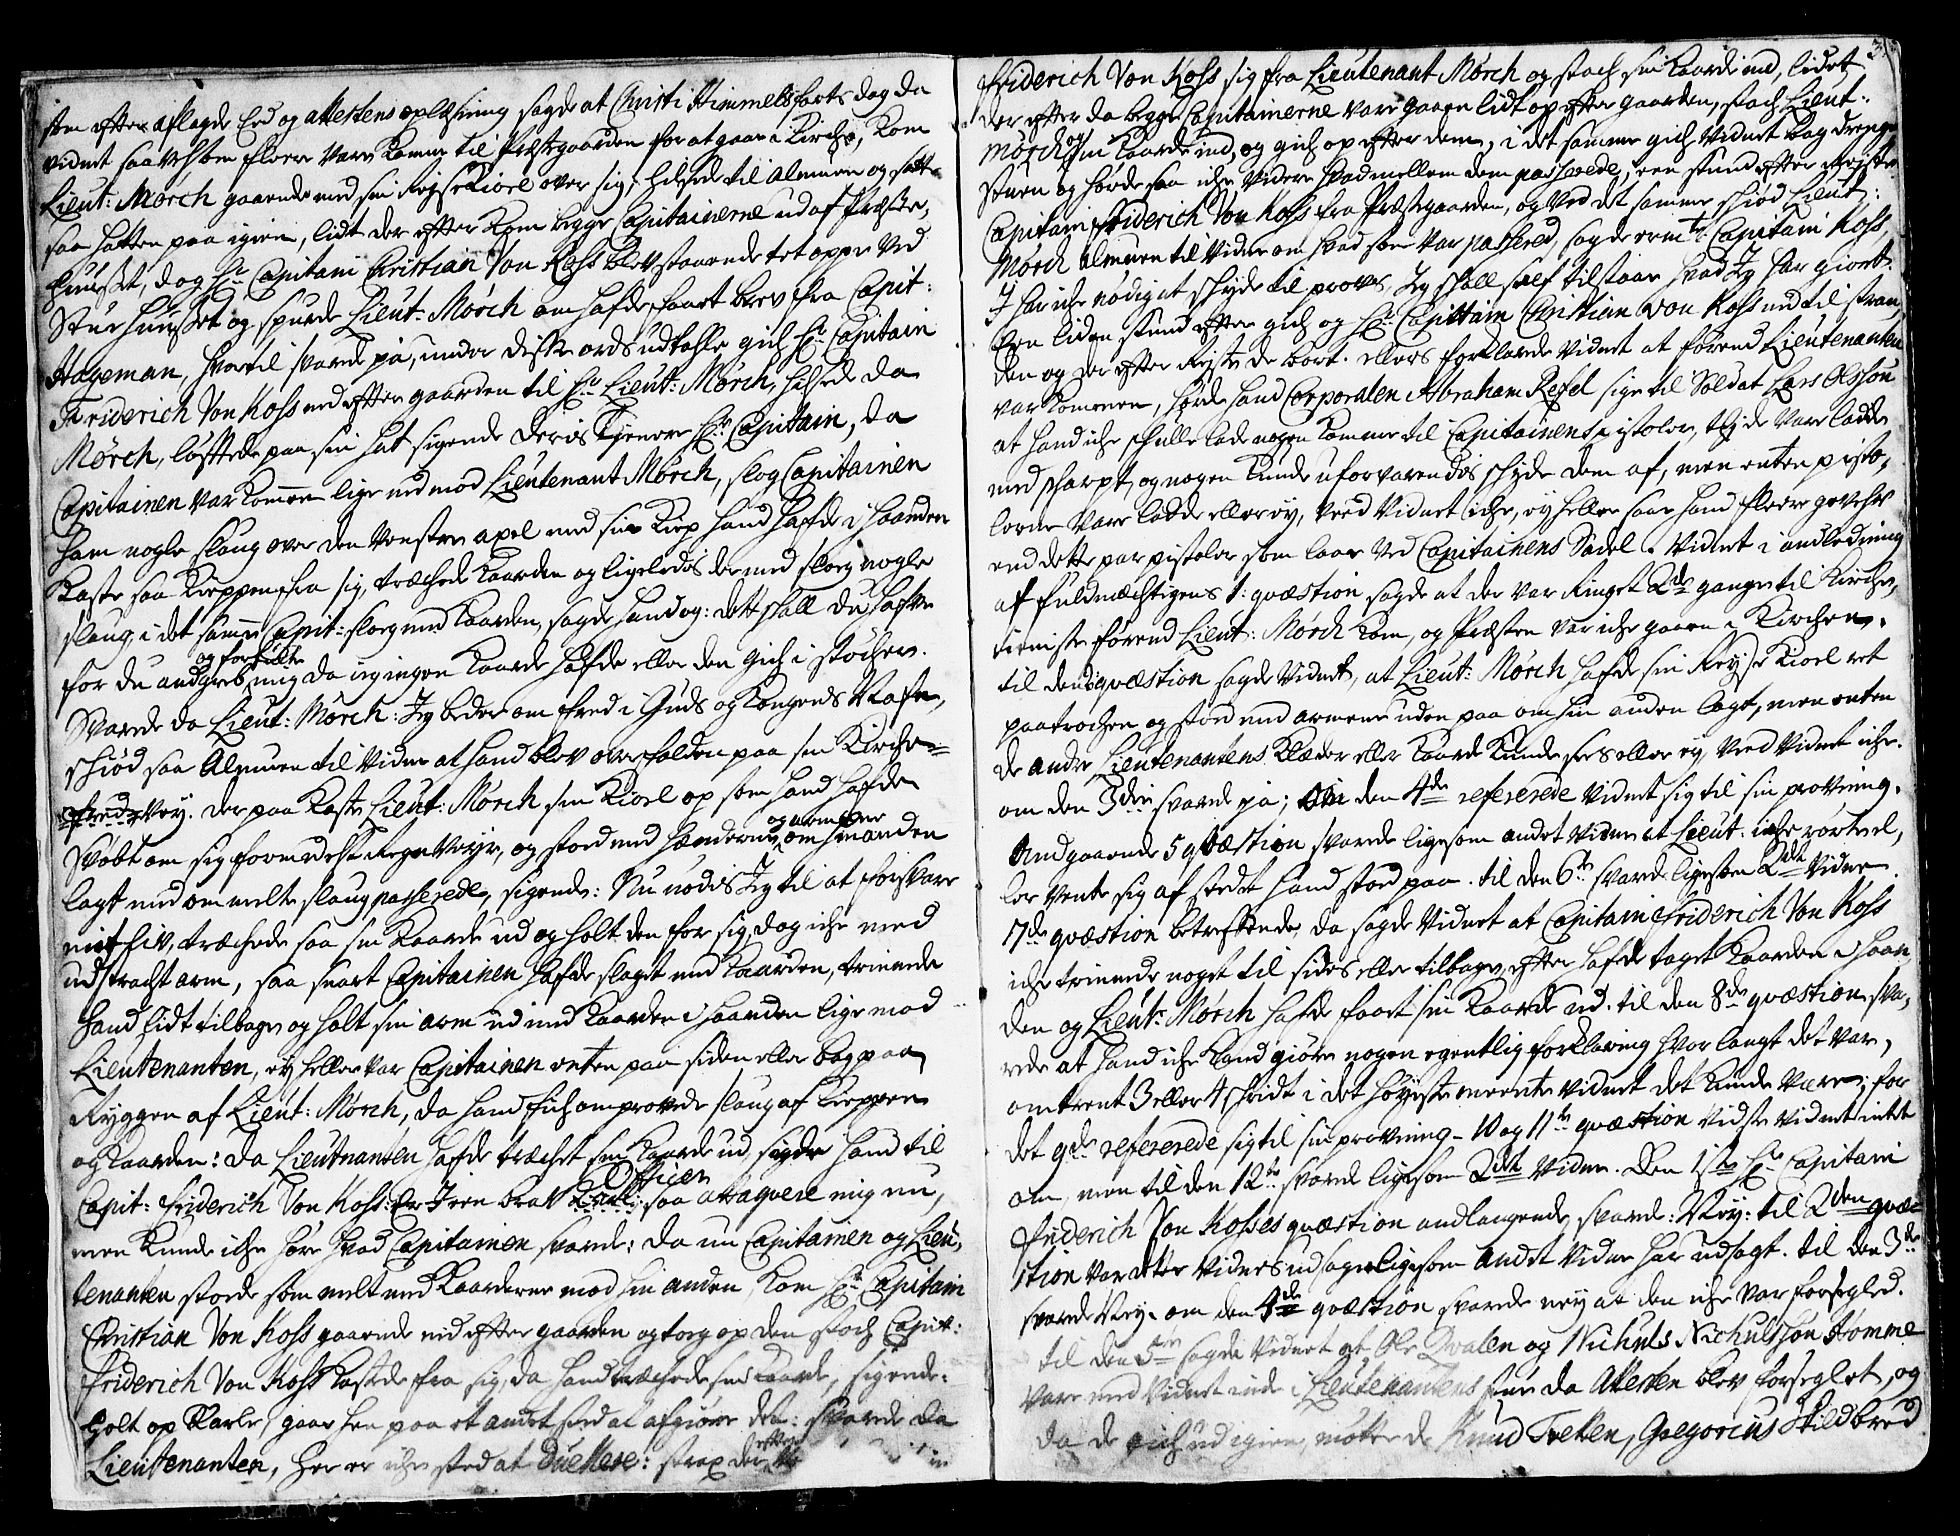 som efter aflagde Eed og attestens oplæsning sagde at Christi Himmelfarts dag da
vidnet saavelsom fleere vare komne til Præstegaarden for at gaae i Kirche, kom
Lieut: Mørch gaaende med sin Reyse Kiol over sig, hilsede til Almuen og satte
saa hatten paa igien, lidt der efter kom begge Capitainerne ud af Præste,
huuset, dog Hr Capitain Christian Von Koss blev staaende tet oppe ved
Stue huuset og spurde Lieut: Mørch om hafde faaet brev fra Capit:
Hageman, hvortil svarede ja, under disse ords udtalle gich Hr Capitain
Friderich Von Koss ned efter gaarden til Hr Lieut: Mørch, hilsede da
Mørch, løfftede paa sin hat sigende Deris Tienere Hr Capitain, da
Capitainen var kommen lige ned mod Lieutenant Mørch, slog Capitainen
ham nogle slaug over den venstre axel med sin Kiep hand hafde i haanden
kaste saa Kieppen fra sig, træchede kaarden og ligeledis dermed slog nogle
slaug, i det samme Capit: slog med kaarden, sagde hand og: dette skall du hafve
for du andgreb og forfulte mig da ieg ingen kaarde hafde eller den gich i støcher.
Svarede da Lieut: Mørch: Jeg beder om fred i Guds og Kongens Nafn,
schiød saa Almuen til Vidne at hand blev overfalden paa sin Kirche=
freds=Vey. Der paa kaste Lieut: Mørch sin Kiol op som hand hafde
svøbt om sig formedelst Regn Veyr, og stod med hænderne og armene om hinanden
lagt med ommelte slaug passerede, sigende: Nu nødes Jeg til at forsvare
mit Liv, træchede saa sin Kaarde ud og holt den for sig, dog iche med
udstracht arm, saa snart Capitainen hafde slaget med kaarden, trinede
hand lidt tilbage og holt sin arm ud med kaarden i haanden lige mod
Lieutenanten, ey heller var Capitainen enten paa siden eller bag paa
Ryggen af Lieut: Mørch, da hand fich omprovede slaug af Kieppen
og kaarden: Da Lieutnanten hafde træchet sin kaarde ud, sigde hand til
Capit: Friderich Von Koss: Er I een brav Officer saa attaqvere mig nu,
men kunde iche høre hvad Capitainen svarede: Da nu Capitainen og Lieu,
tenanten stode som melt med kaarderne mod hin anden, kom Hr Capitain
Christian Von Koss gaaende ned efter gaarden og tog op den stoch Capit:
Friderich Von Koss kastede fra sig, da hand træchede sin kaarde, sigende:
holt op Karle, gaae hen paa et andet sted at afgiøre det: svarede da
Lieutenanten, her er iche sted at Duellere: strax der efter
Friderich Von Koss sig fra Lieutenant Mørch og stach sin kaarde ind, lidet
der efter da begge Capitainerne vare gaaen lidt op efter gaarden, stach Lieut:
Mørch og sin kaarde ind, og gich op efter dem, i det samme gich Vidnet bag drenge
stuen og hørde saa iche videre hvad mellem dem passerede, een stund efter reyste
Capitain Friderich Von Koss fra Præstegaarden, og ved det samme schiød Lieut:
Mørch Almuen til Vidne om hvad som var passered, sagde ermte Capitain Koss,
I har iche nødig at schyde til proves, Jeg skall self tilstaae hvad Jeg har giort.
Een liden stund efter gich og Hr Capitain Christian Von Koss ned til stran,
den og der efter Reyste de bort. ellers forklarede Vidnet at førend Lieutenanten
var kommen, hørde hand Corporalen Abraham Refel sige til Soldat Lars Olsson
at hand iche schulle lade nogen komme til Capitainens pistoler, thj de vare ladde
med scharpt, og nogen kunde uforvarendis schyde dem af, men enten pisto,
lerne vare ladde eller ey, veed Vidnet iche, ey heller saae hand fleere gevehr
end dette par pistoler som laae ved Capitainens Sadel. Vidnet i andledning
af fuldmæchtigens 1: qvæstion sagde at der var Ringet 2de gange til Kirche,
tieniste førend Lieut: Mørch kom, og Præsten var iche gaaen i Kirchen.
til den 2 qvæstion sagde Vidnet, at Lieut: Mørch hafde sin Reyse Kiol ret
paatrochen og stod med armene uden paa om hin anden lagt, men enten
de andre Lieutenantens Klæder eller kaarde kunde sees eller ey, veed Vidnet iche.
om den 3die svarede ja; om den 4de refererede Vidnet sig til sin provning.
Andgaaende 5 qvæstion svarede ligesom andet Vidne at Lieut: iche rørte el,
ler vente sig af stedet hand stod paa. til den 6te svarede ligesom 2det Vidne.
7de qvæstion betreffende, da sagde Vidnet at Capitain Friderich Von Koss
iche trinede noget til sides eller tilbage, efter hafde taget kaarden i haan,
den og Lieut: Mørch hafde faaet sin kaarde ud. til den 8de qvæstion sva,
rede at hand iche kand giøre nogen egentlig forklaring hvor langt det var,
omtrent 3 eller 4 schridt i det høyeste meente Vidnet det kunde være; for
det 9de refererede sig til sin provning - 10 og 11te qvæstion vidste Vidnet intet
om, men til den 12te svarede ligesom 2det Vidne. Den 1ste Hr Capitain
Friderich Von Kosses qvæstion andlangende, svarede: Ney: til 2den qvæ=
stion var dette Vidnes udsagn ligesom andet Vidne har udsagt. til den 3die
svarede Ney. om den 4de qvæstion svarede ney at den iche var forseglet.
til den 5te sagde Vidnet at Ole Qvalen og Nichuls Nichulssøn Homme
vare med Vidnet inde i Lieutenantens stue da Attesten blev forseglet, og
da de gich ud igien, møtte de Knud Tvetten, Gregorius Skildbred